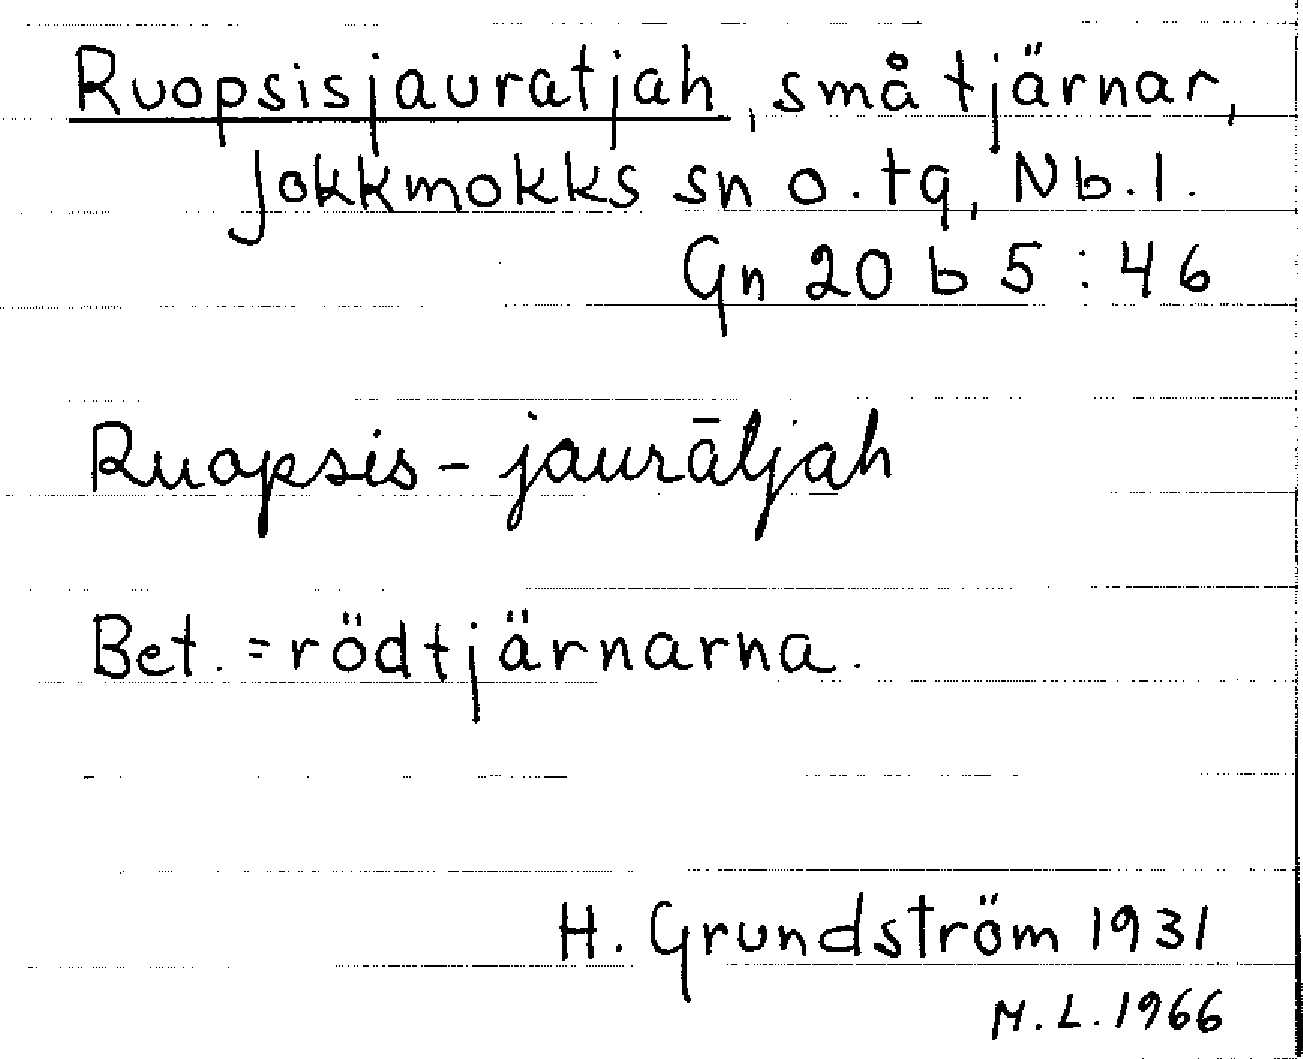 Ruopsisjauratjah, små tjärnar,
Jokkmokks sn o. tg, Nb. l.
Gn 20 b 5 : 46
Ruopsis - jaurātjah
Bet. = rödtjärnarna.
H. Grundström 1931
M. L. 1966